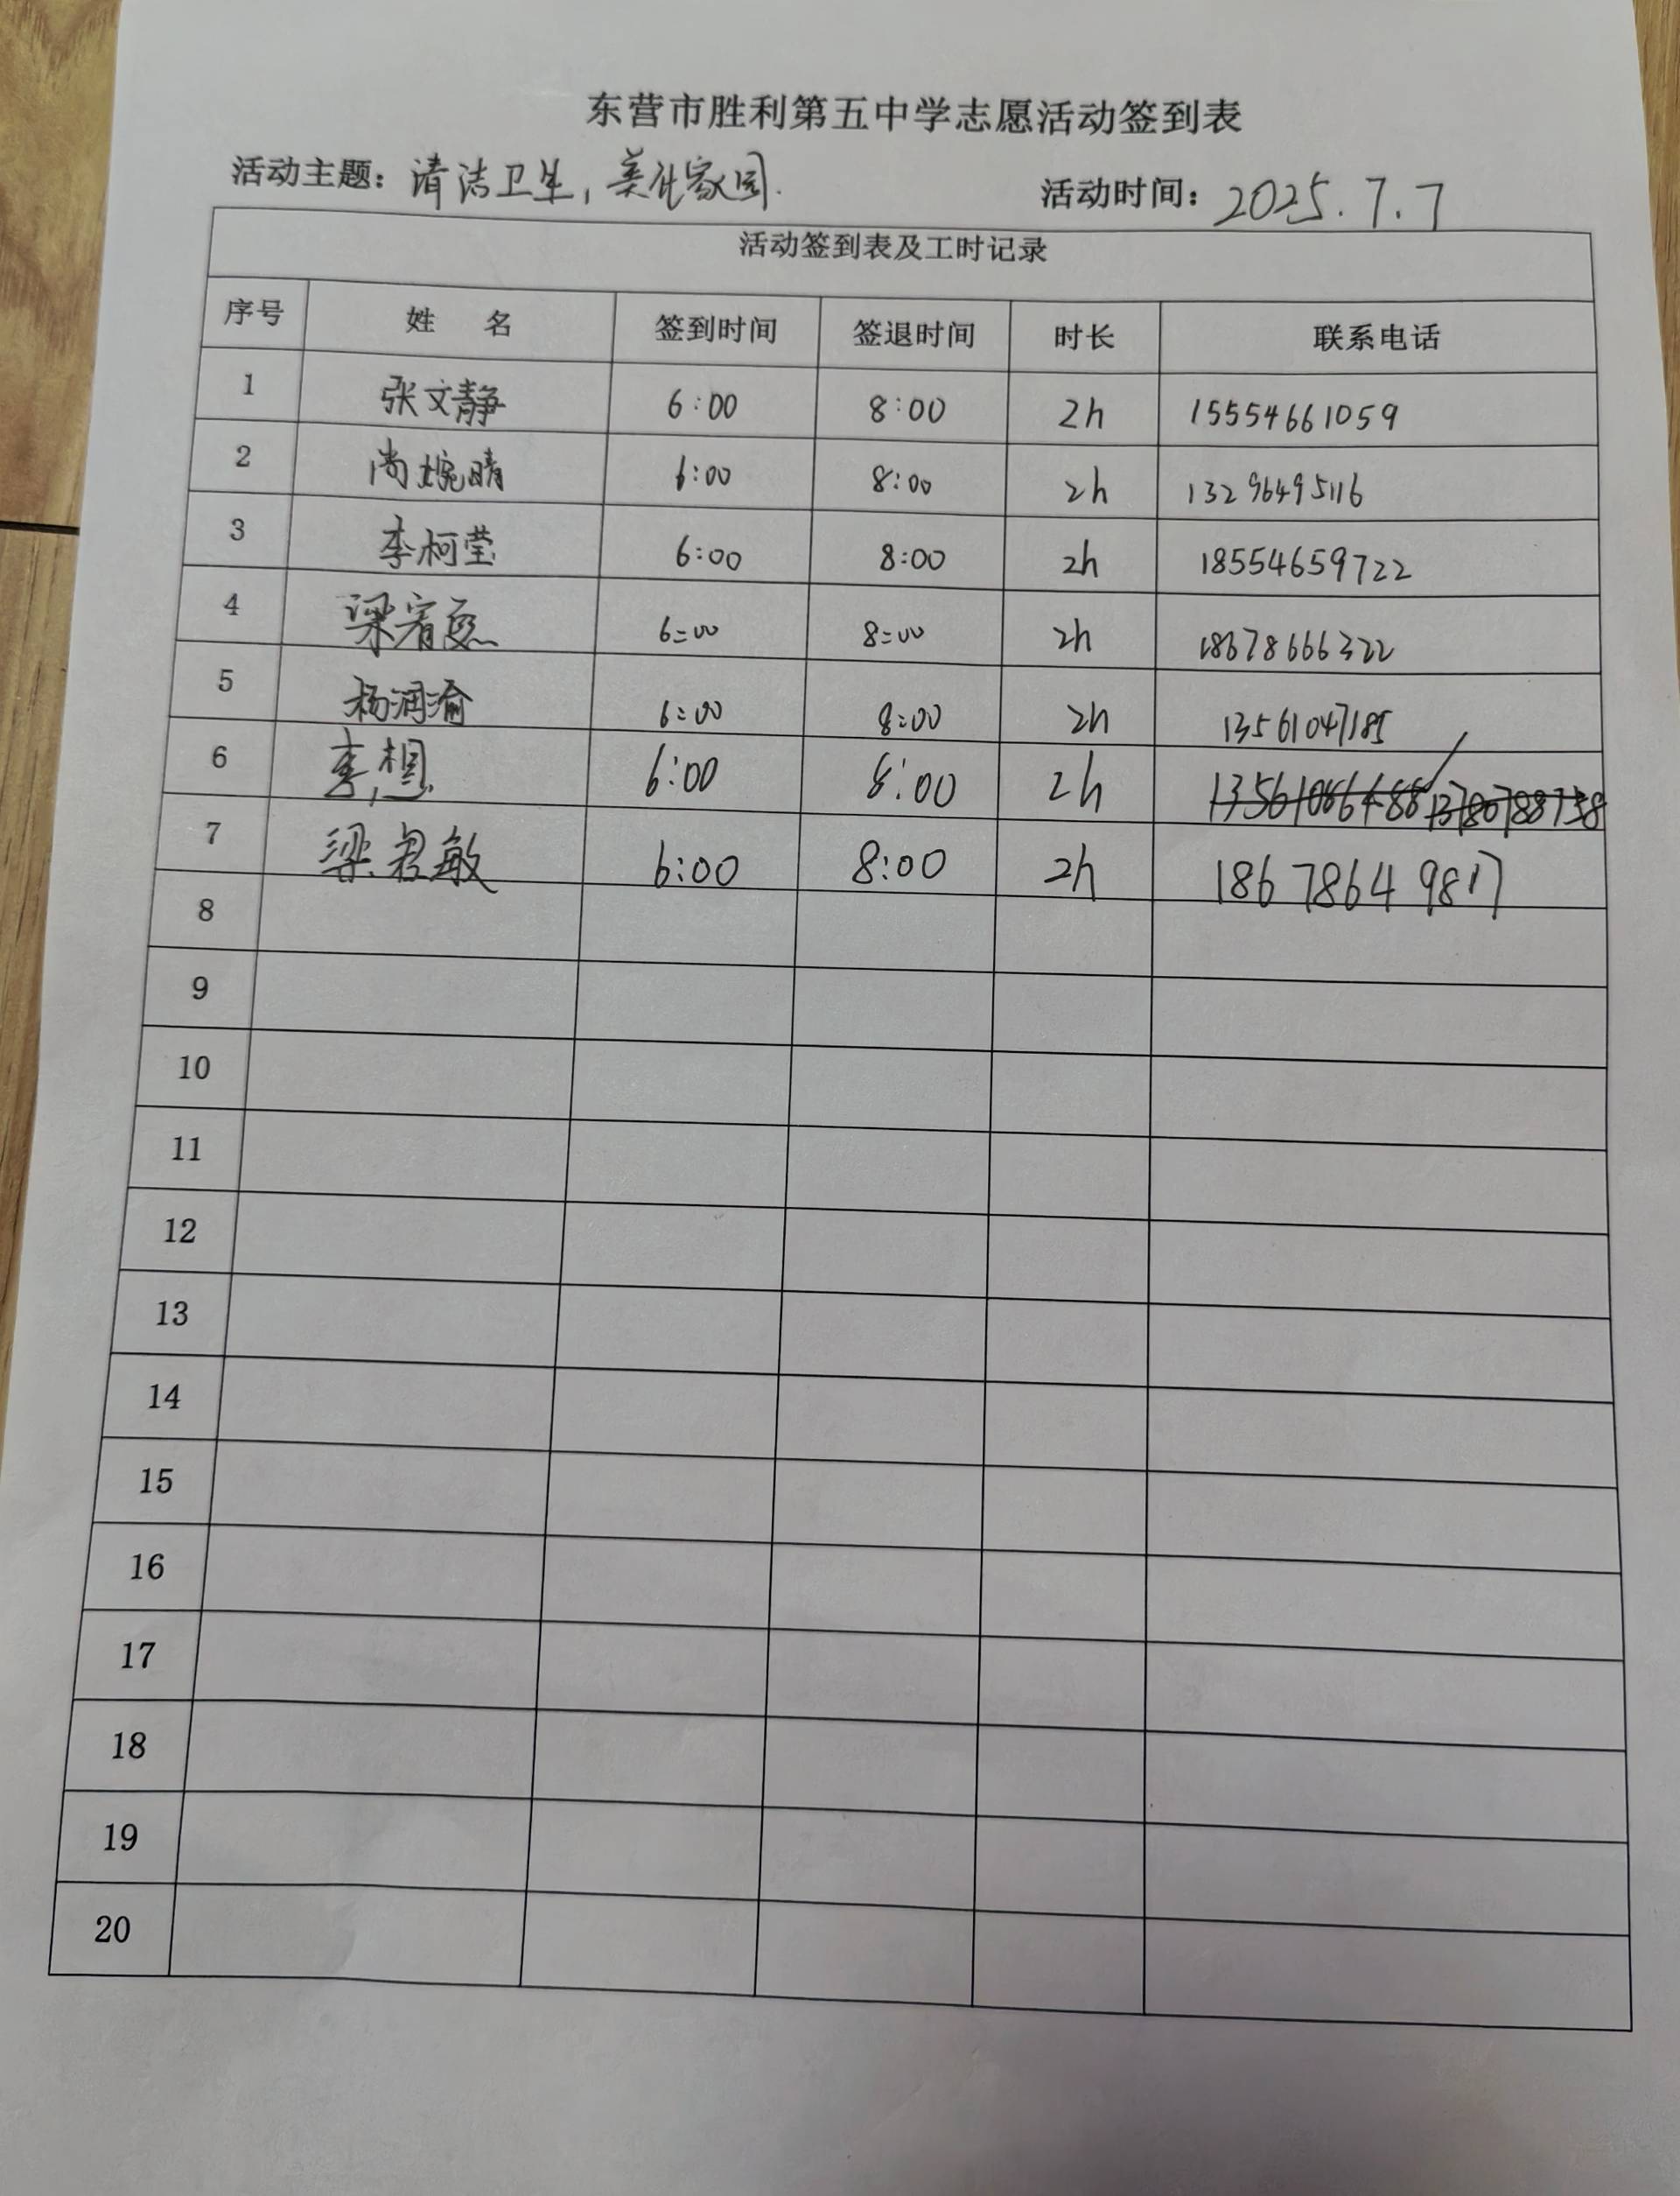 东营市胜利第五中学志愿活动签到表
活动主题：清洁卫生，美化家园. 活动时间：2025.7.7
活动签到表及工时记录
序号 姓 名 签到时间 签退时间 时长 联系电话
1 张文静 6:00 8:00 2h 15554661059
2 尚婉晴 6:00 8:00 2h 13296495116
3 李柯莹 6:00 8:00 2h 18554659722
4 梁宥 6:00 8:00 2h 18678666322
5 杨润渝 6:00 8:00 2h 13561047185
6 李想 6:00 8:00 2h
7 梁君敏 6:00 8:00 2h 18678649817
8
9
10
11
12
13
14
15
16
17
18
19
20